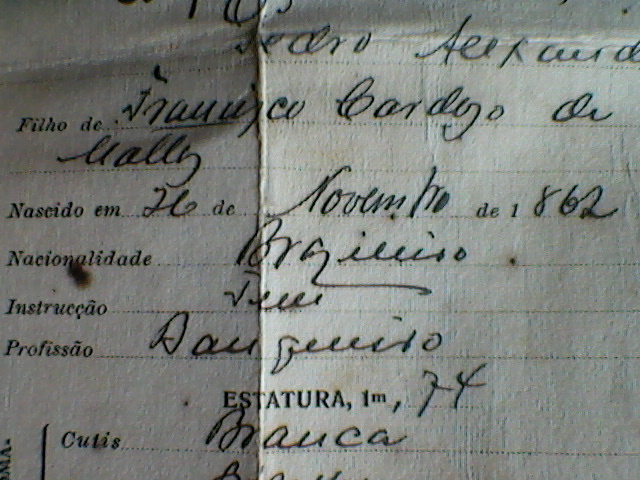 Pedro Alexand
Filho de Francisco Cardozo de
Mattos
Nascido em 26 de Novembro de 1862
Nacionalidade Brazileiro
Instrucção Tem
Profissão Banqueiro
ESTATURA, 1m, 74
Cutis Branca